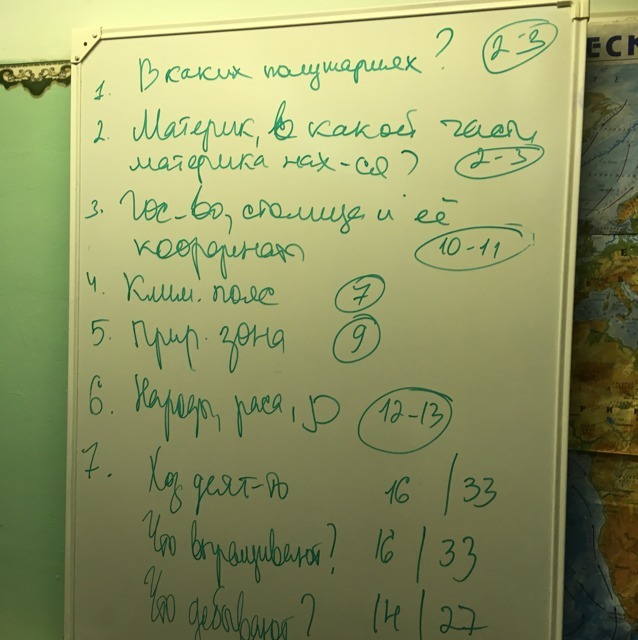 1. В каких полушариях? 2-3
2. Материк, в какой части
материка нах-ся? 2-3
3. Гос-во, столица и её
координаты 10-11
4. Клим. пояс 7
5. Прир. зона 9
6. Народы, раса, 12-13
7. Хоз деят-ть 16 / 33
Что выращивают? 16 / 33
Что добывают? 14 / 27
ЕСК